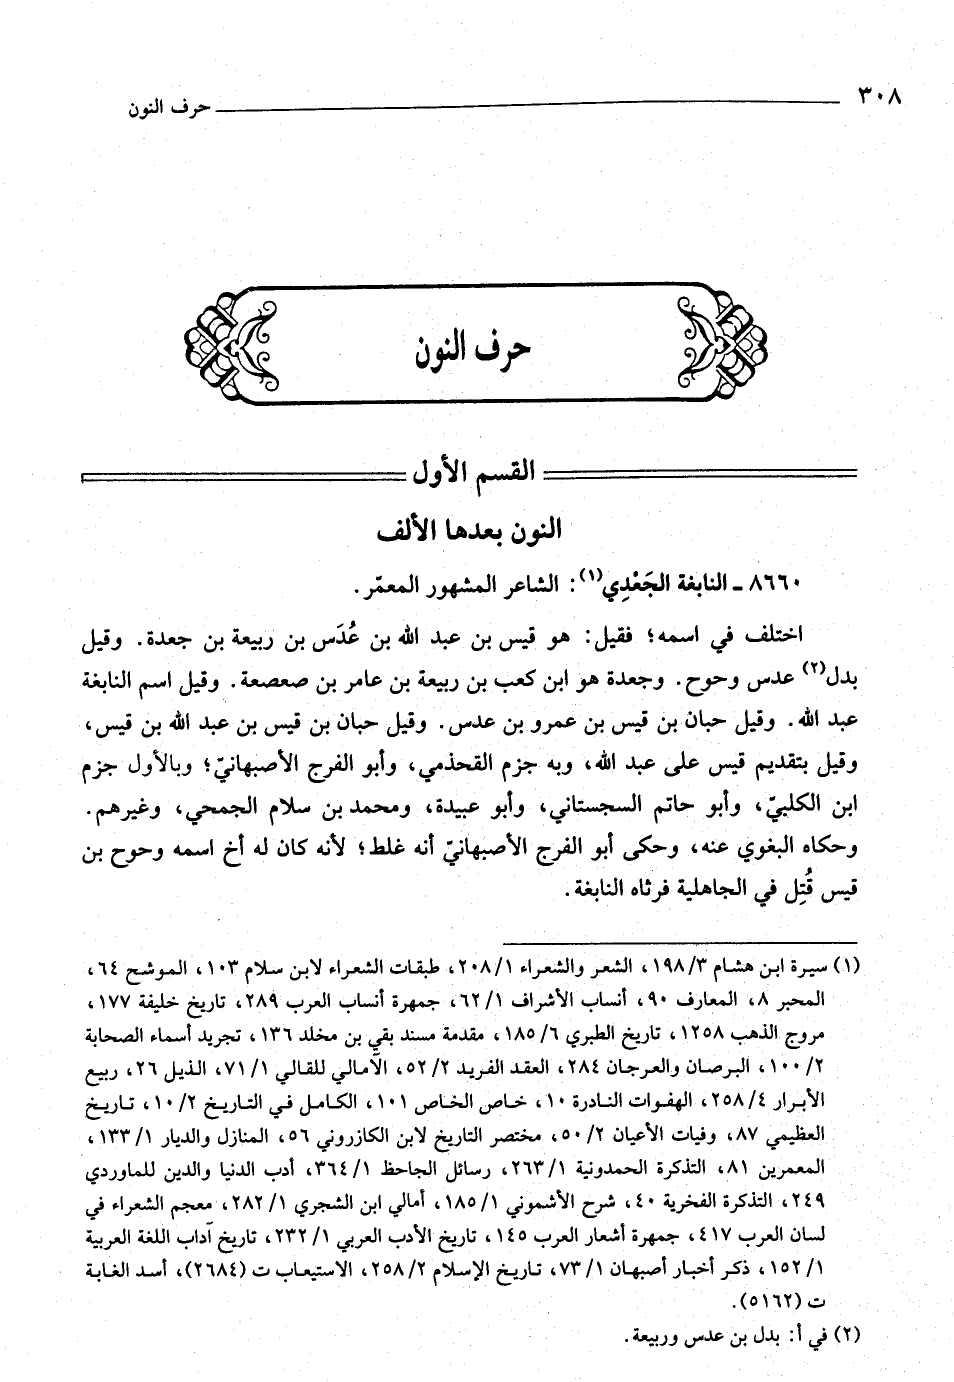 ٣٠٨ حرف النون
حرف النون
القسم الأول
النون بعدها الألف
٨٦٦٠ ـ النابغة الجَعْدِي(١): الشاعر المشهور المعمّر.
اختلف في اسمه؛ فقيل: هو قيس بن عبد الله بن عُدَس بن ربيعة بن جعدة. وقيل
بدل(٢) عدس وحوح. وجعدة هو ابن كعب بن ربيعة بن عامر بن صعصعة. وقيل اسم النابغة
عبد الله. وقيل حبان بن قيس بن عمرو بن عدس. وقيل حبان بن قيس بن عبد الله بن قيس،
وقيل بتقديم قيس على عبد الله، وبه جزم القحذمي، وأبو الفرج الأصبهانيّ؛ وبالأول جزم
ابن الكلبيّ، وأبو حاتم السجستاني، وأبو عبيدة، ومحمد بن سلام الجمحي، وغيرهم.
وحكاه البغوي عنه، وحكى أبو الفرج الأصبهانيّ أنه غلط؛ لأنه كان له أخ اسمه وحوح بن
قيس قُتِل في الجاهلية فرثاه النابغة.
(١) سيرة ابن هشام ٣/ ١٩٨، الشعر والشعراء ١/ ٢٠٨، طبقات الشعراء لابن سلام ١٠٣، الموشح ٦٤،
المحبر ٨، المعارف ٩٠، أنساب الأشراف ١/ ٦٢، جمهرة أنساب العرب ٢٨٩، تاريخ خليفة ١٧٧،
مروج الذهب ١٢٥٨، تاريخ الطبري ٦/ ١٨٥، مقدمة مسند بقي بن مخلد ١٣٦، تجريد أسماء الصحابة
٢/ ١٠٠، البرصان والعرجان ٢٨٤، العقد الفريد ٢/ ٥٢، الأمالي للقالي ١/ ٧١، الذيل ٢٦، ربيع
الأبرار ٤/ ٢٥٨، الهفوات النادرة ١٠، خاص الخاص ١٠١، الكامل في التاريخ ٢/ ١٠، تاريخ
العظيمي ٨٧، وفيات الأعيان ٢/ ٥٠، مختصر التاريخ لابن الكازروني ٥٦، المنازل والديار ١/ ١٣٣،
المعمرين ٨١، التذكرة الحمدونية ١/ ٢٦٣، رسائل الجاحظ ١/ ٣٦٤، أدب الدنيا والدين للماوردي
٢٤٩، التذكرة الفخرية ٤٠، شرح الأشموني ١/ ١٨٥، أمالي ابن الشجري ١/ ٢٨٢، معجم الشعراء في
لسان العرب ٤١٧، جمهرة أشعار العرب ١٤٥، تاريخ الأدب العربي ١/ ٢٣٢، تاريخ آداب اللغة العربية
١/ ١٥٢، ذكر أخبار أصبهان ١/ ٧٣، تاريخ الإسلام ٢/ ٢٥٨، الاستيعاب ت (٢٦٨٤)، أسد الغابة
ت (٥١٦٢).
(٢) في أ: بدل بن عدس وربيعة.